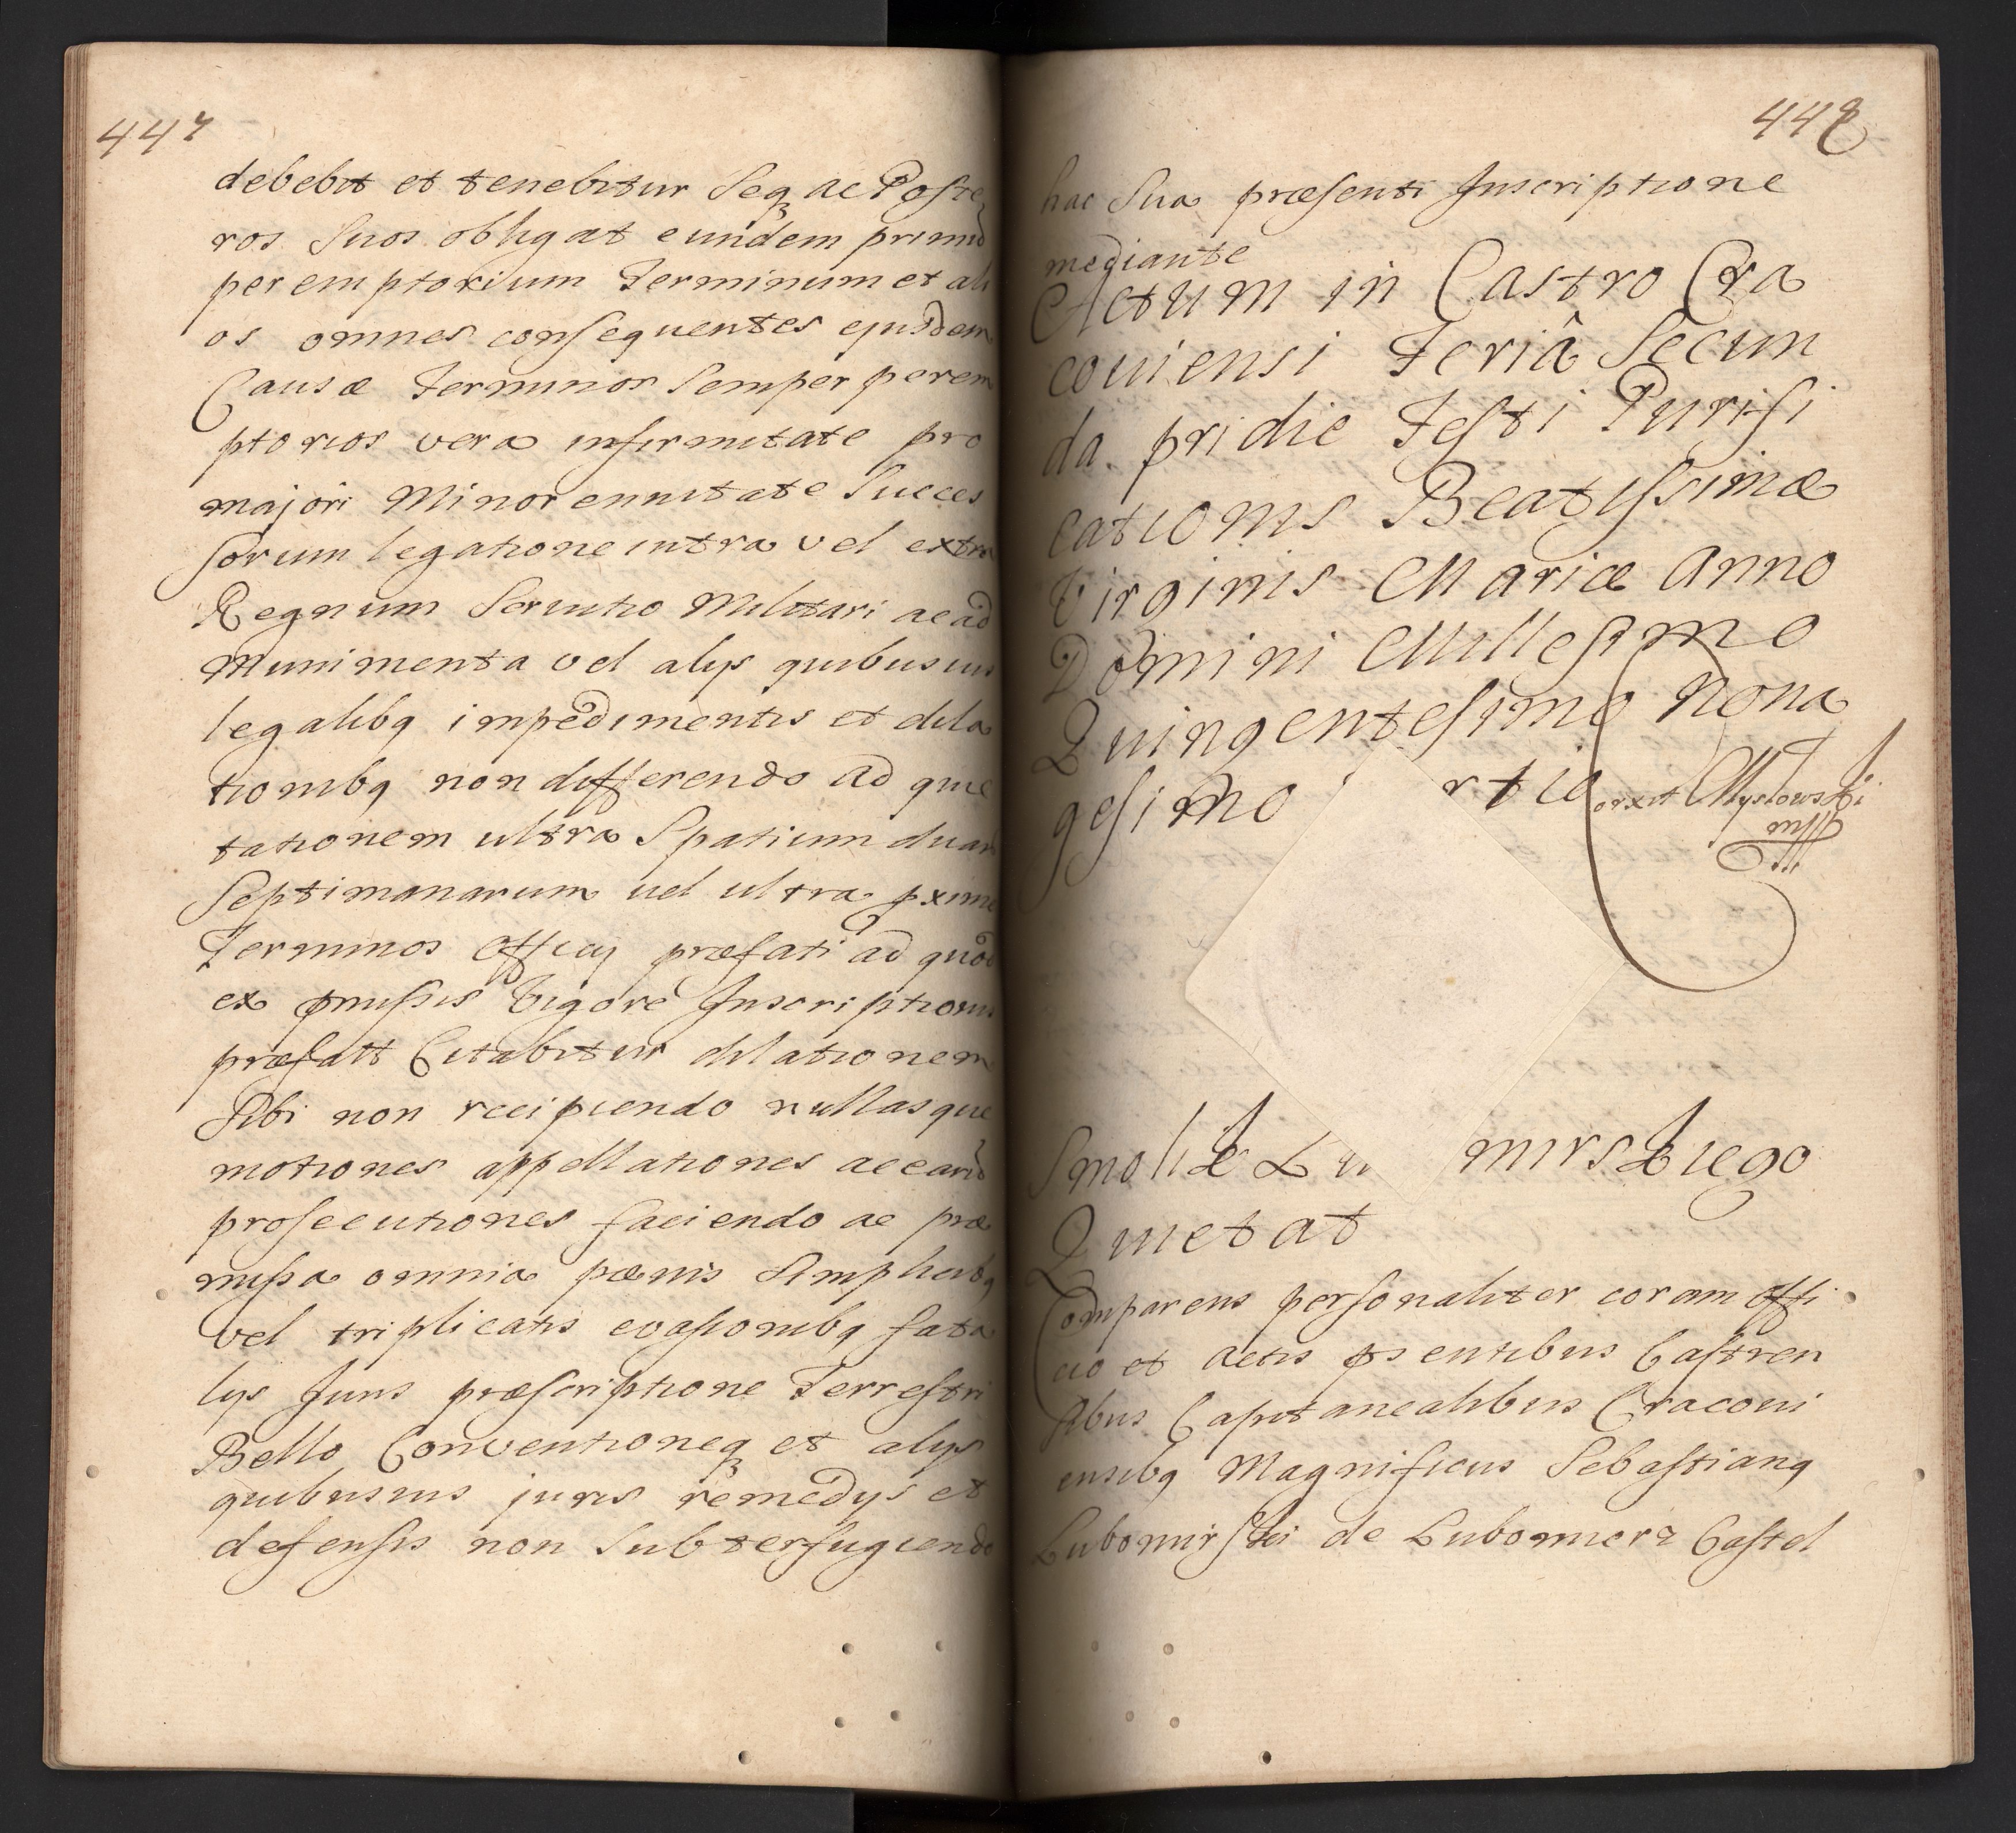 447
debebit et tenebitur Seq ac Poste
ros Suos obligat eundem primu
peremptorium Terminum et ali
os omnes consequentes ejusdem
Causæ Terminos Semper perem
ptorios vera infirmitate pro
majori Minorennitate Succes
sorum legatione intra vel extra
Regnum Servitio Militari ac ad
Munimenta vel alijs quibusvis
legalibq impedimentis et dila
tionibq non differendo ad quie
tationem ultra Spatium duar
Septimanarum vel ultra pxime
Terminos Officij præfati ad quod
ex pmissis Vigore Inscriptionis
præfatt Citabitur dilationem
Sibi non recipiendo nullasque
motiones appellationes ac earu
prosecutiones faciendo ac præ
missa omnia pænis Simplicibq
vel triplicatis evasionibq fata
lijs Juris præscriptione Terrestri
Bello Conventioneq et alijs
quibusvis juris remedijs et
defensis non Subterfugiendo
448
hac Sua præsenti Inscriptione
mediante
Actum in Castro Cra
coviensi Feriâ Secun
da pridie Festi Purifi
cationis Beatissimæ
Virginis Mariæ Anno
Domini Millesimo
Quingentesimo Nona
gesimo rtio
orxit Mysłowski
mpp
Smolik Lu mirskiego
Quietat
Comparens personaliter coram offi
cio et Actis psentibus Castren
sibus Capitanealibus Cracovi
ensibq Magnificus Sebastianq
Lubomirski de Lubomierz Castel